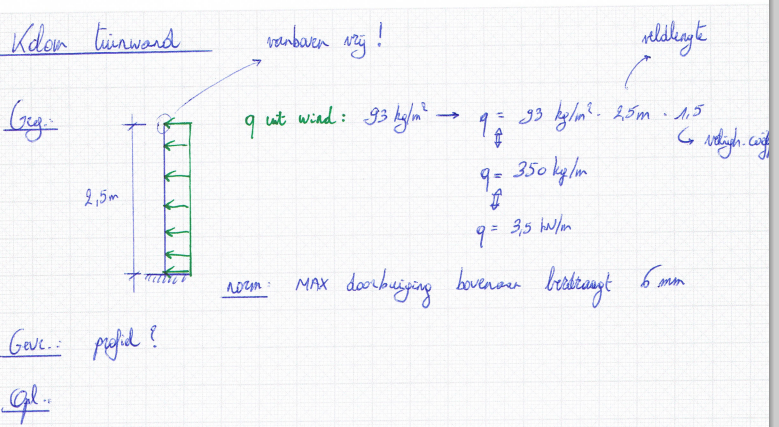 Kolom tuinwand
vanboven vrij!
veldlengte
Geg.:
q uit wind: 93 kg/m² → q = 93 kg/m² · 2,5m · 1,5
veiligh. coëff
q = 350 kg/m
2,5m
q = 3,5 kN/m
norm: MAX doorbuiging bovenaan bedraagt 6 mm
Gevr.: profiel?
Opl.: